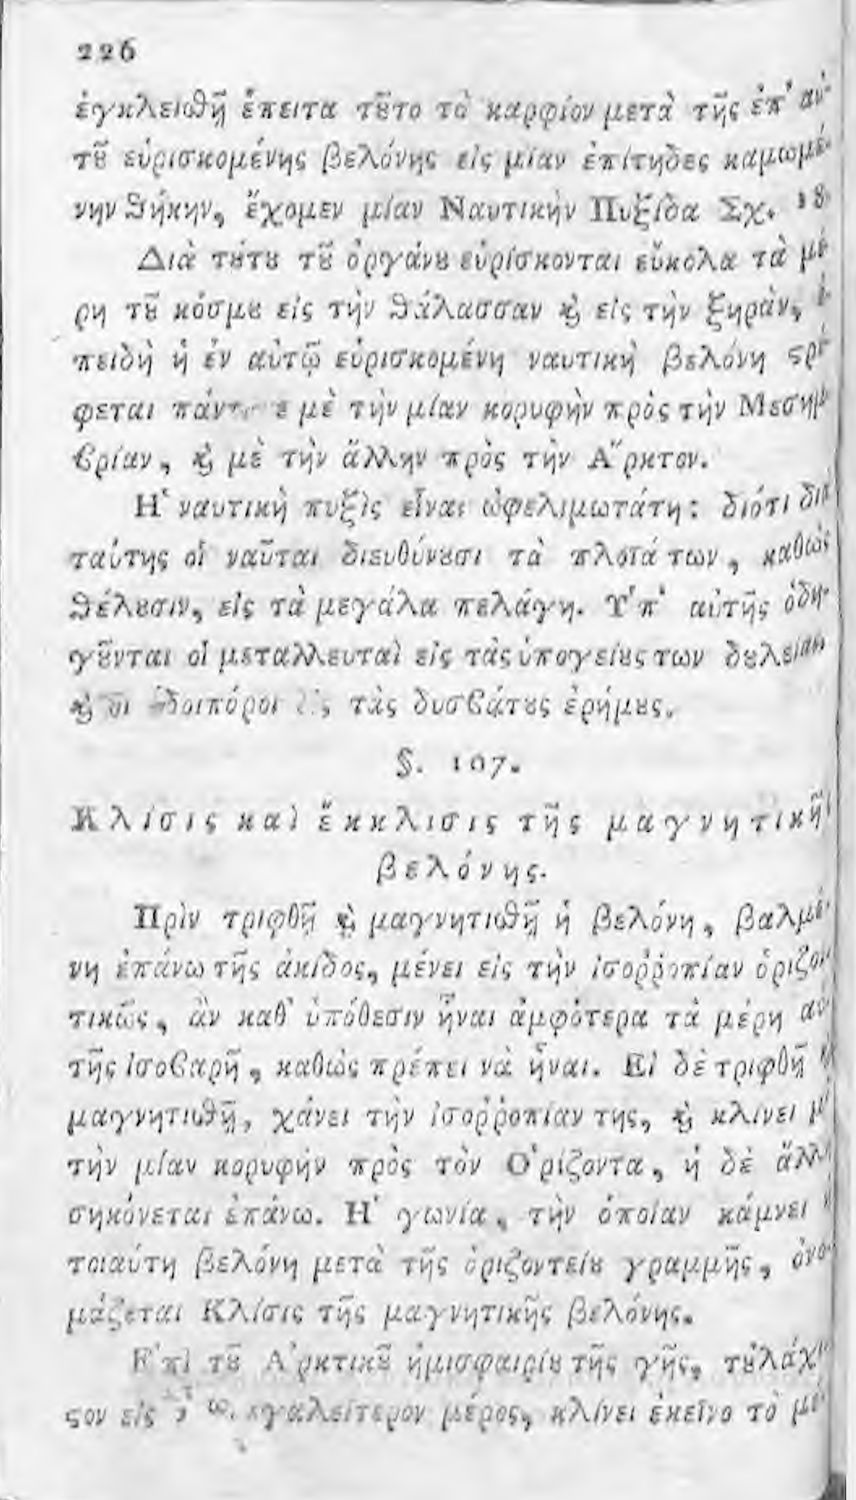 226
ἐγκλειϑῇ ἔπειτα τȣ͂το τὸ καρφίον μετὰ τῆς ἐπ' αὐ-
τȣ͂ εὑρισκομένης βελόνης εἰς μίαν ἐπίτηδες καμωμέ-
νην ϑήκην, ἔχομεν μίαν Ναυτικὴν Πυξίδα Σχ. 18
Διὰ τȣ́τȣ τȣ͂ ὀργάνȣ εὑρίσκονται εὔκολα τὰ μέ-
ρη τȣ͂ κόσμȣ εἰς τὴν ϑάλασσαν ϗ εἰς τὴν ξηρὰν, ἐ-
πειδὴ ἡ ἐν αὐτῷ εὑρισκομένη ναυτικὴ βελόνη ϛρέ-
φεται πάντοτε μὲ τὴν μίαν κορυφὴν πρὸς τὴν Μεσημ-
ϐρίαν, ϗ μὲ τὴν ἄλλην πρὸς τὴν Α῎ρκτον.
Η῾ ναυτικὴ πυξὶς εἶναι ὠφελιμωτάτη: διότι διὰ
ταύτης οἱ ναῦται διευθύνȣσι τὰ πλοῖά των, καθὼς
ϑέλȣσιν, εἰς τὰ μεγάλα πελάγη. Υ῾π' αὐτῆς ὁδη-
γȣ͂νται οἱ μεταλλευταὶ εἰς τὰς ὑπογείȣς των δȣλείας
ϗ οἱ ὁδοιπόροι εἰς τὰς δυσϐάτȣς ἐρήμȣς.
§. 107.
Κλίσις καὶ ἔκκλισις τῆς μαγνητικῆς
βελόνης.
Πρὶν τριφθῇ ϗ μαγνητιϑῇ ἡ βελόνη, βαλμέ-
νη ἐπάνω τῆς ἀκίδος, μένει εἰς τὴν ἰσοῤῥοπίαν ὁριζον-
τικῶς, ἂν καθ' ὑπόθεσιν ἦναι ἀμφότερα τὰ μέρη αὐ-
τῆς ἰσοϐαρῆ, καθὼς πρέπει νὰ ἦναι. Εἰ δὲ τριφθῇ ϗ
μαγνητιϑῇ, χάνει τὴν ἰσοῤῥοπίαν της, ϗ κλίνει μὲ
τὴν μίαν κορυφὴν πρὸς τὸν Ο῾ρίζοντα, ἡ δὲ ἄλλη
σηκόνεται ἐπάνω. Η῾ γωνία, τὴν ὁποίαν κάμνει ἡ
τοιαύτη βελόνη μετὰ τῆς ὁριζοντείȣ γραμμῆς, ὀνο-
μάζεται Κλίσις τῆς μαγνητικῆς βελόνης.
Ε᾿πὶ τȣ͂ Α᾿ρκτικȣ͂ ἡμισφαιρίȣ τῆς γῆς, τȣλάχι-
ϛον εἰς μέρος, κλίνει ἐκεῖνο τὸ μέ-